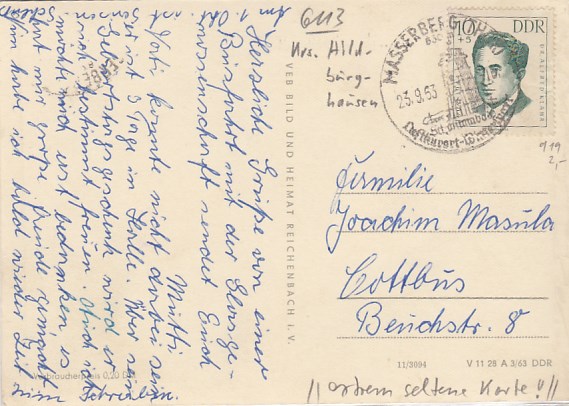 Herzliche Grüße von einer
Busfahrt mit der Hausge-
nossenschaft sendet Euch
Mutti
Goti konnte nicht dabei sein
er ist 3 Tage in Halle. Über sein
Geburtstagsgeschenk wird er
sich bestimmt freuen. Auch ich
möchte mich erst bedanken es
hat mir große Freude gemacht
habe ich bald wieder Zeit
6113
Krs. Hild-
burg-
hausen
MASSERBERG
23.9.63
Luftkurort
10
DDR
919
2,-
Familie
Joachim Masula
Cottbus
Beuchstr. 8
VEB BILD UND HEIMAT REICHENBACH i. V.
Verbraucherpreis 0,20 DM
11/3094
V 11 28 A 3/63 DDR
// extrem seltene Karte!! //